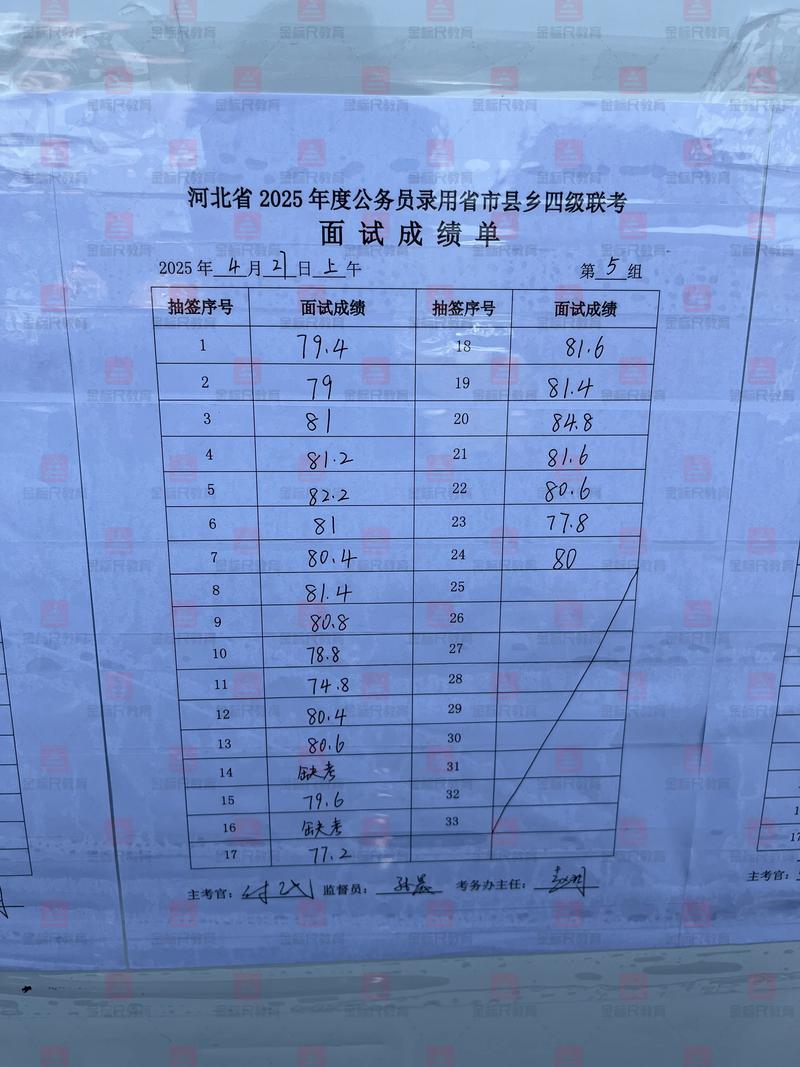 河北省 2025 年度公务员录用省市县乡四级联考
面试成绩单
2025 年 4 月 27 日 上 午 第 5 组
抽签序号 面试成绩 抽签序号 面试成绩
1 79.4 18 81.6
2 79 19 81.4
3 81 20 84.8
4 81.2 21 81.6
5 82.2 22 80.6
6 81 23 77.8
7 80.4 24 80
8 81.4 25
9 80.8 26
10 78.8 27
11 74.8 28
12 80.4 29
13 80.6 30
14 缺考 31
15 79.6 32
16 缺考 33
17 77.2
主考官： 监督员： 考务办主任：
主考官：
金标尺教育